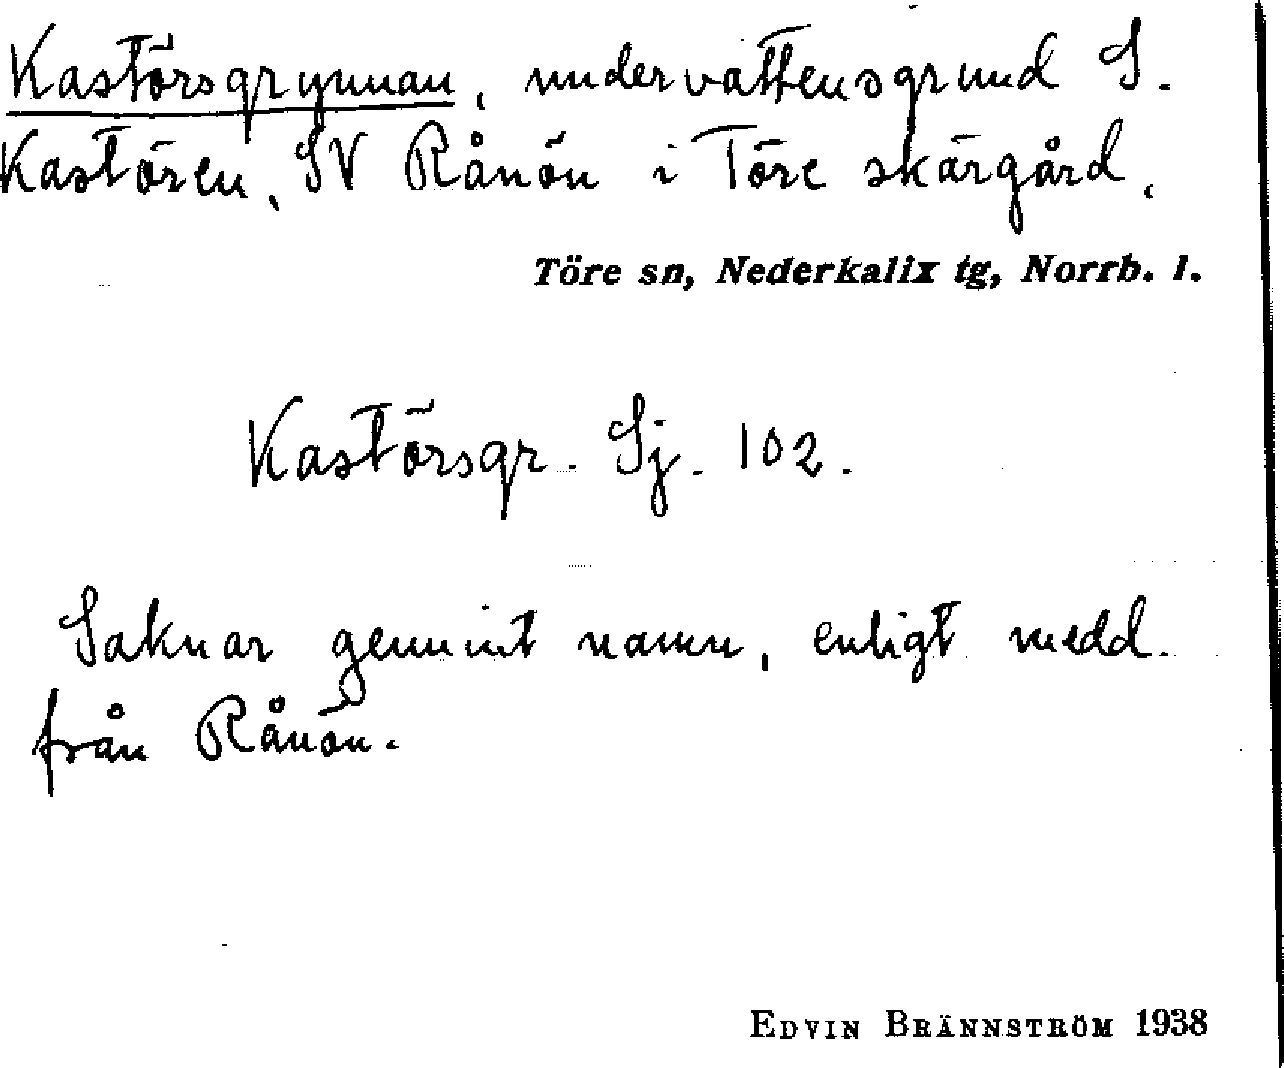 Kastörsgrynnan, undervattensgrund S.
Kastören, SV Rånön i Töre skärgård,
Töre sn, Nederkalix tg, Norrb. l.
Kastörsgr. Sj. 102.
Saknar genuint namn, enligt medd.
från Rånön.
EDVIN BRÄNNSTRÖM 1938